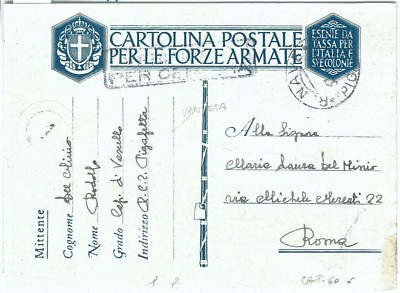 CARTOLINA POSTALE
PER LE FORZE ARMATE
ESENTE DA
TASSA PER
L'ITALIA E
SVE COLONIE
VANTATA
Mittente
Cognome Del Minio
Nome Rodolfo
Grado Cap. di Vascello
Indirizzo R.C.T. Pigafetta
Alla Signora
Maria Laura Del Minio
via Michele Mercati 22
Roma